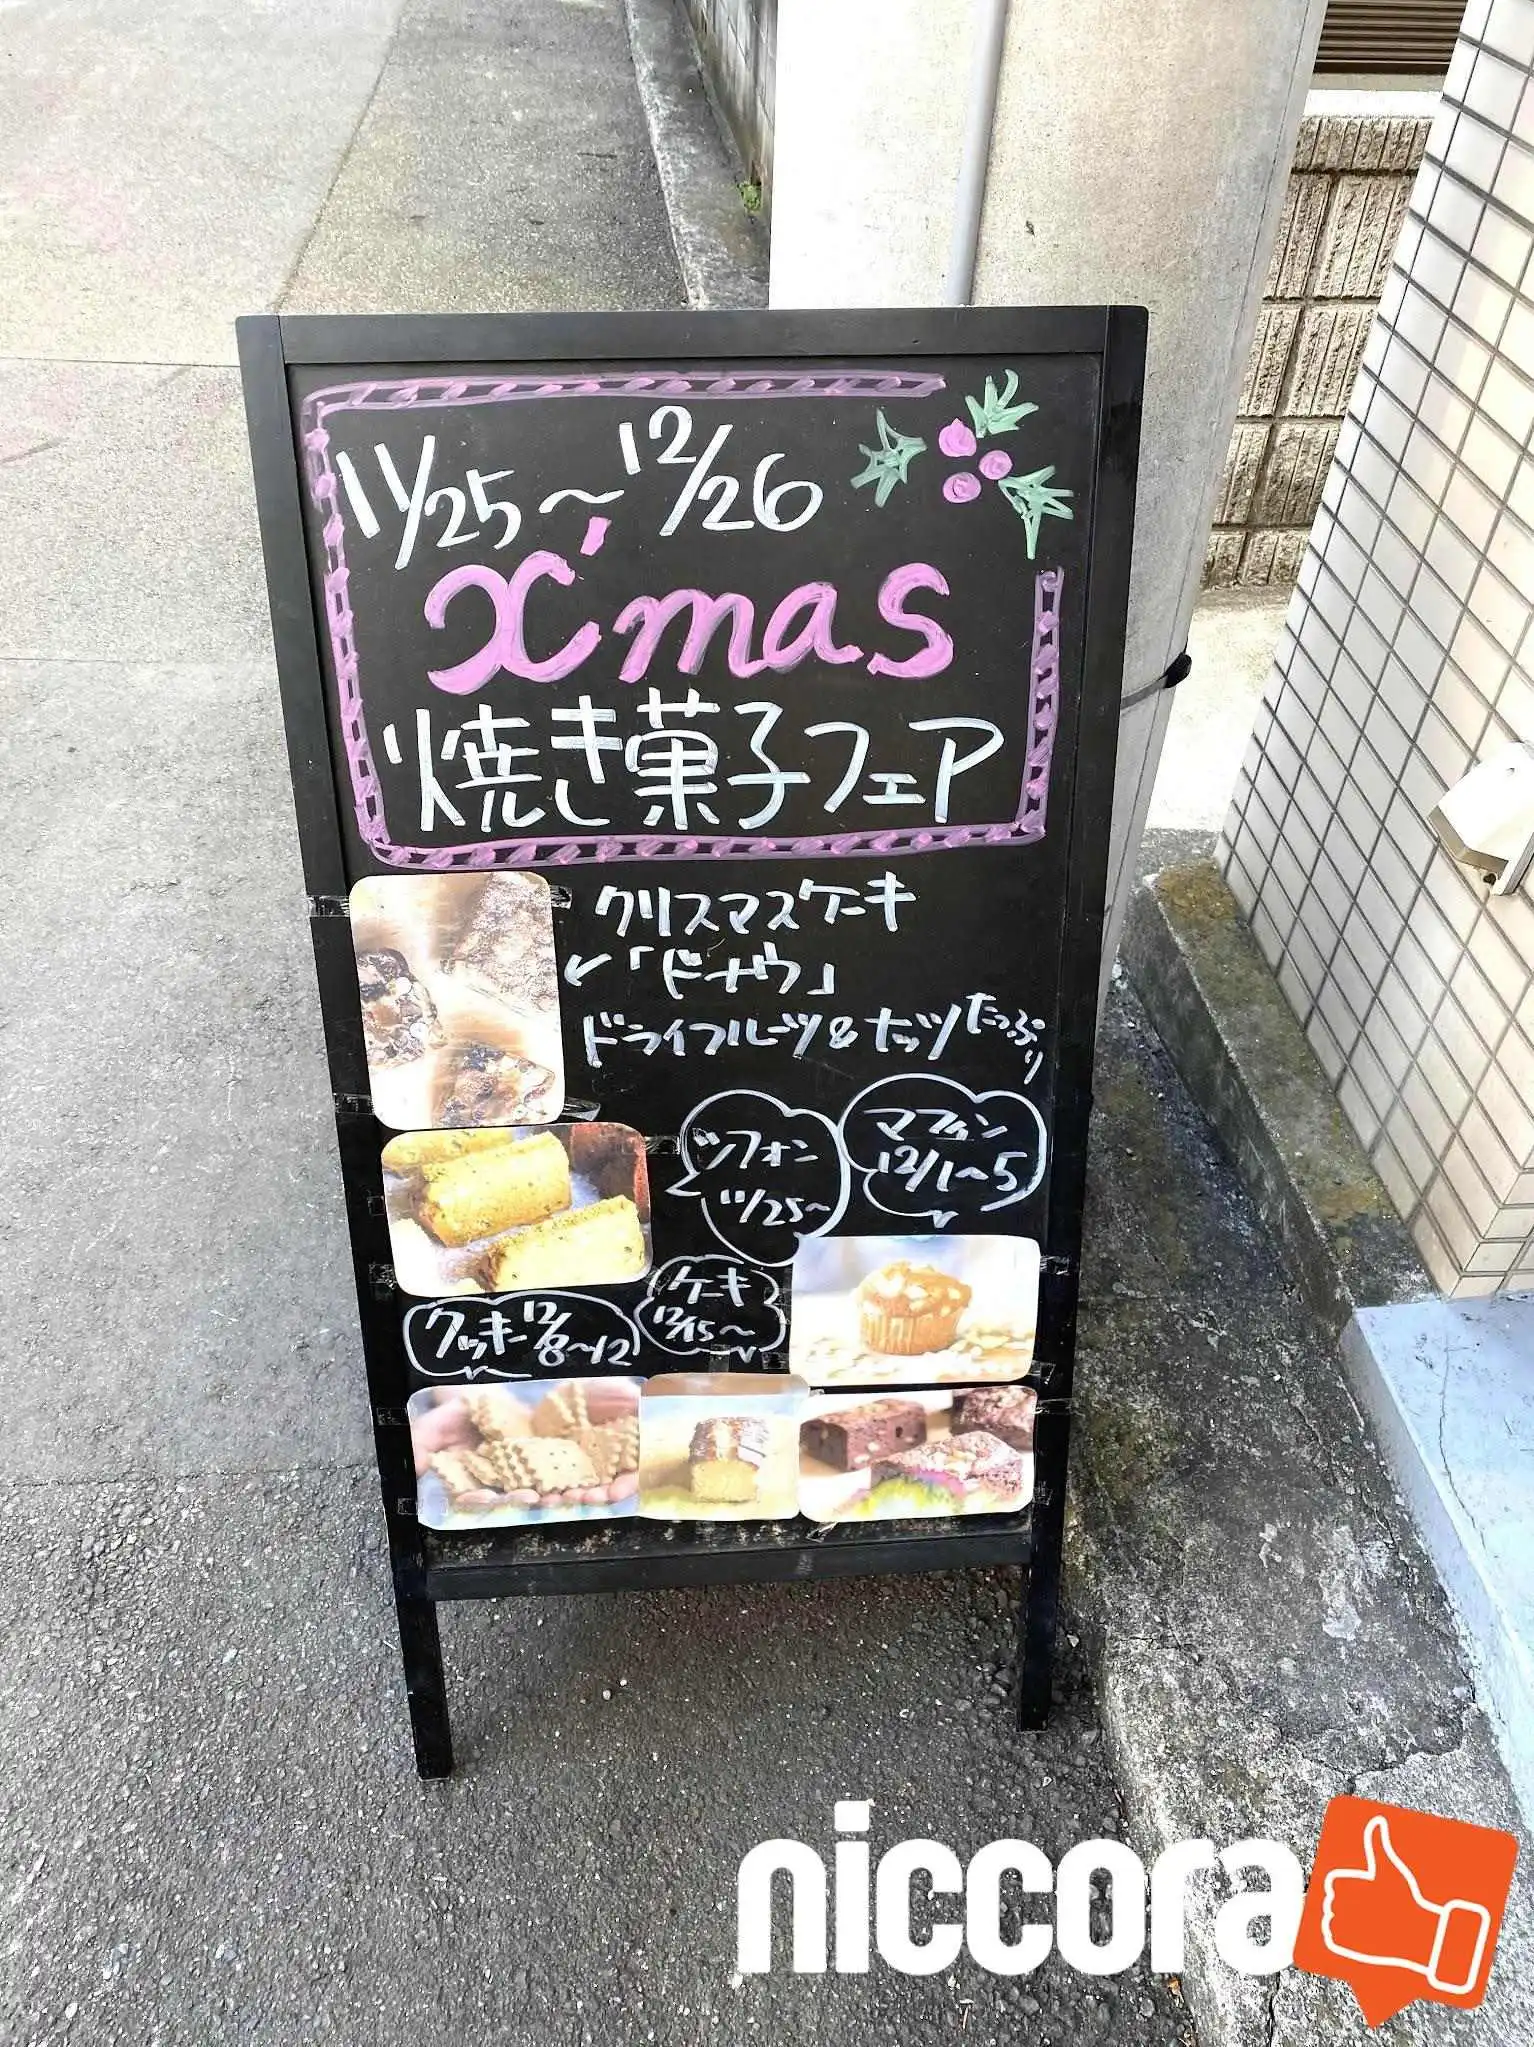 11/25〜12/26
X'mas
焼き菓子フェア
クリスマスケーキ
←「ドナウ」
ドライフルーツ&ナッツたっぷり
シフォン
11/25〜
マフィン
12/1〜5
ケーキ
12/15〜
クッキー12/8〜12
niccora